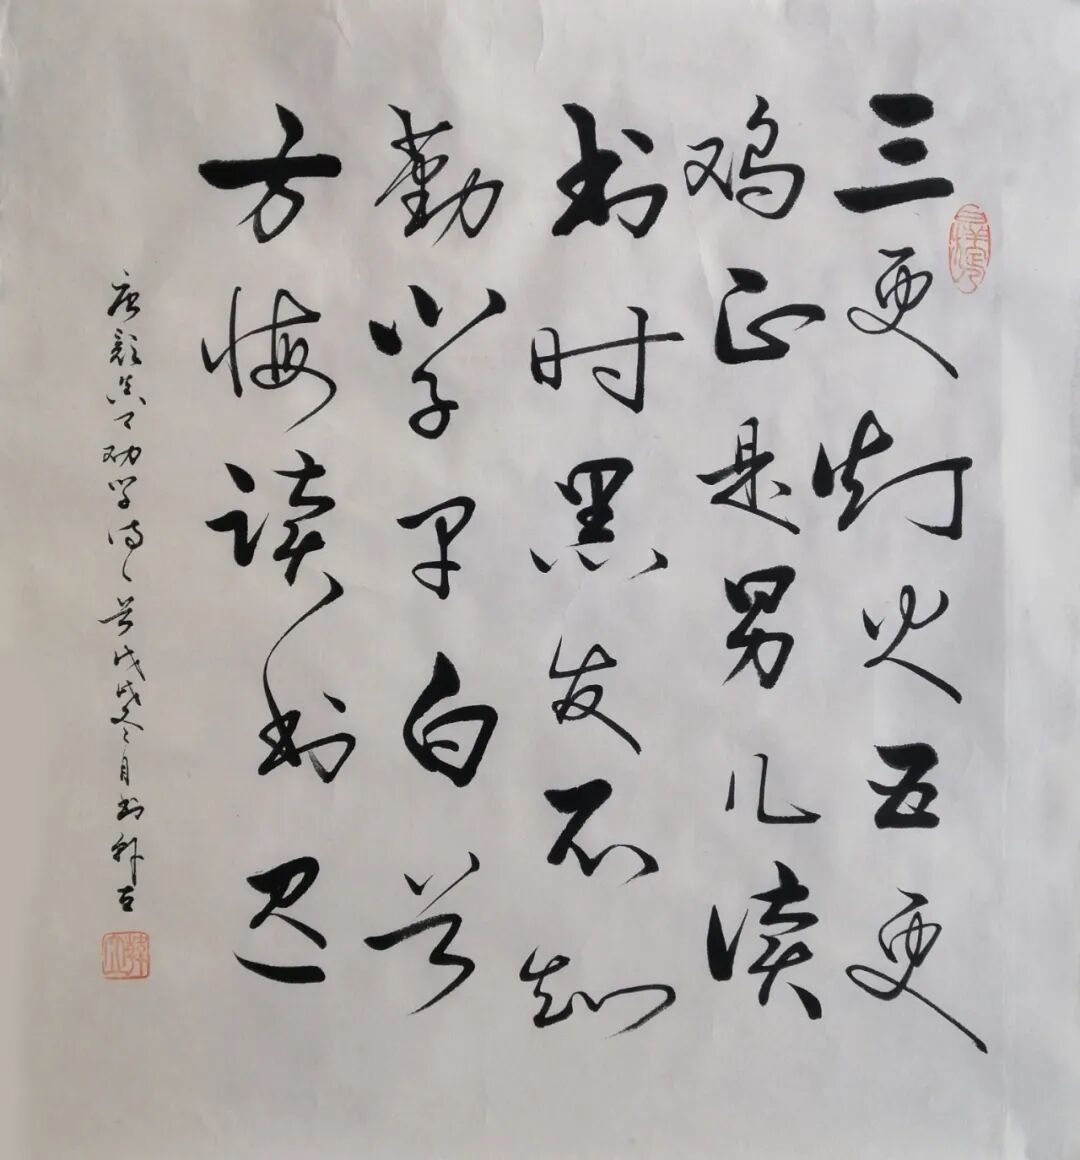 三更灯火五更
鸡正是男儿读
书时黑发不知
勤学早白首
方悔读书迟
唐颜真卿劝学诗一首戊戌冬月书